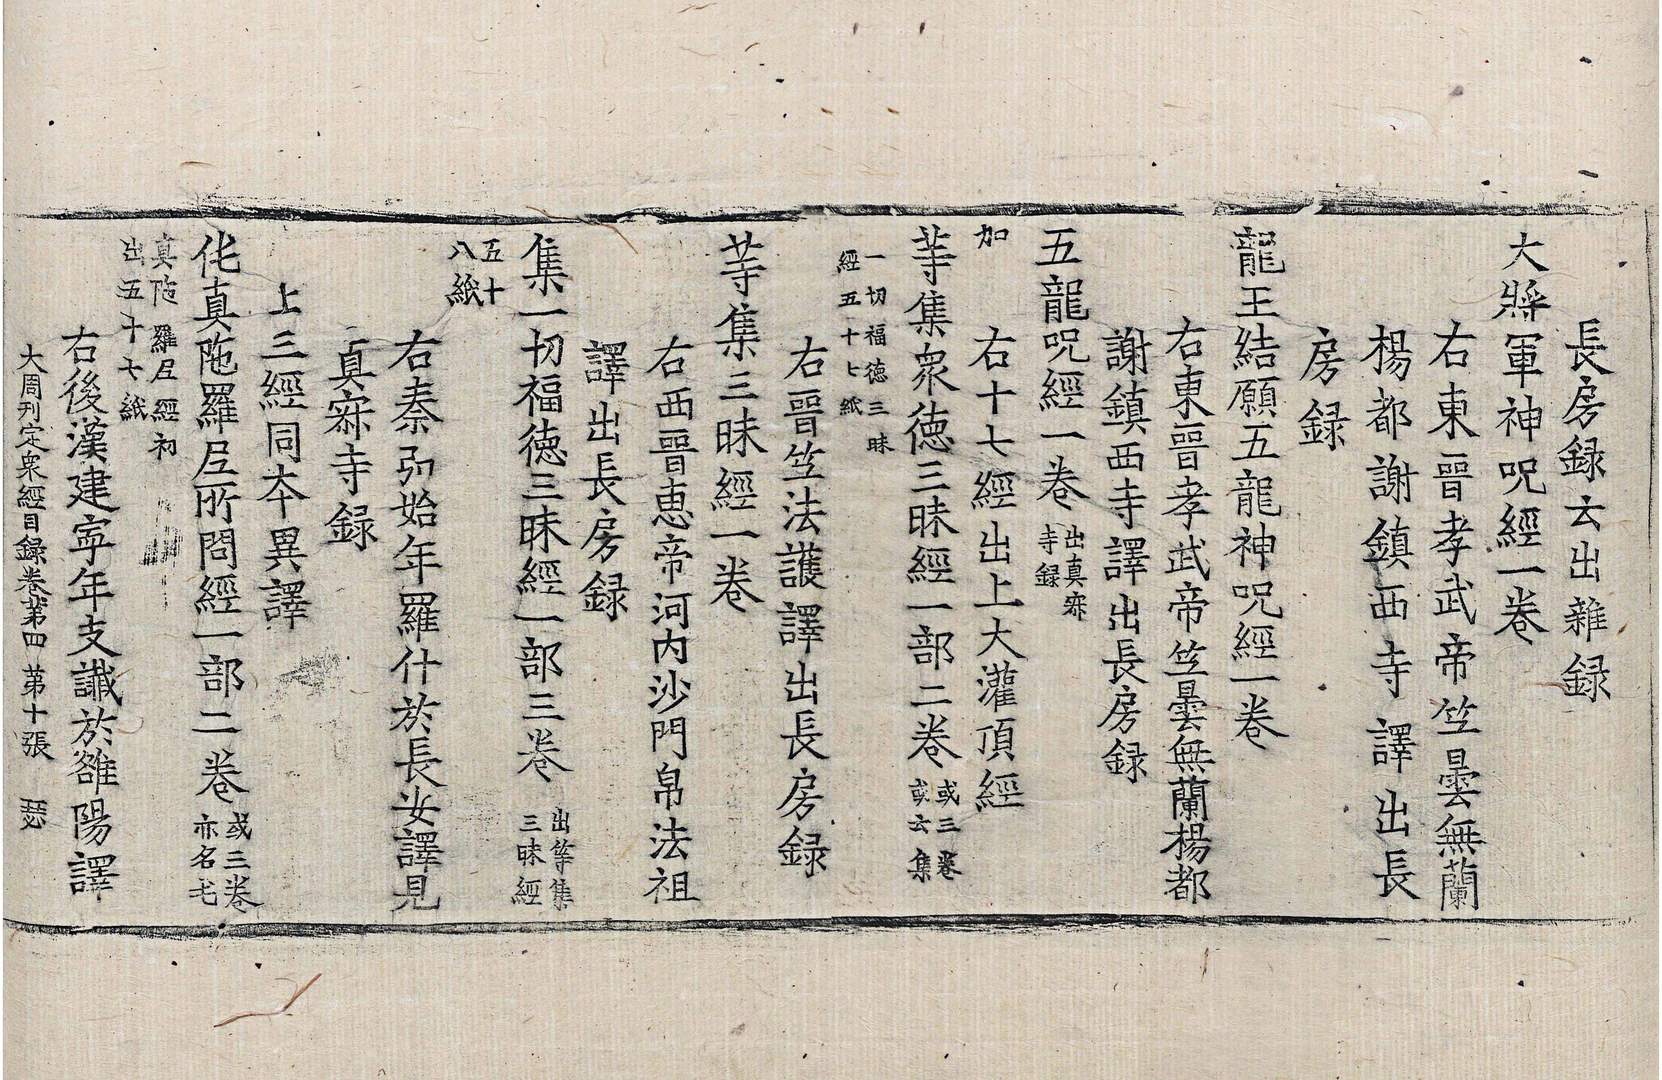 長房録云出雜録
大將軍神呪經一卷
右東晉孝武帝竺曇無蘭
楊都謝鎮西寺譯出長
房録
龍王結願五龍神呪經一卷
右東晉孝武帝竺曇無蘭楊都
謝鎮西寺譯出長房録
五龍呪經一卷
出真寂
寺録
右十七經出上大灌頂經
加
等集衆徳三昧經一部二卷
或三卷
或云集
一切福徳三昧
經五十七紙
右晉竺法護譯出長房録
等集三昧經一卷
右西晉惠帝河内沙門帛法祖
譯出長房録
集一切福徳三昧經一部三卷
出等集
三昧經
五十
八紙
右秦弘始年羅什於長安譯見
真寂寺録
上三經同本異譯
伅真陁羅尼所問經一部二卷
或三卷
亦名伅
真陁羅尼經初
出五十七紙
右後漢建寧年支讖於雒陽譯
大周刊定衆經目録卷第四 第十張 瑟